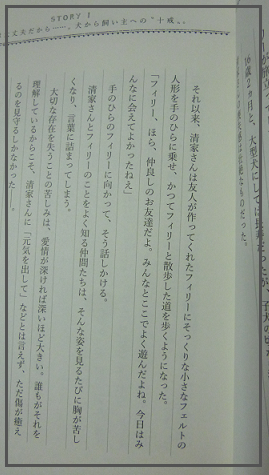 STORY 1
丈夫だから――。犬から飼い主への〝十戒〟。
16歳2カ月と、大型犬にしては
それ以来、清家さんは友人が作ってくれたフィリーにそっくりな小さなフェルトの
人形を手のひらに乗せ、かつてフィリーと散歩した道を歩くようになった。
「フィリー、ほら、仲良しのお友達だよ。みんなとここでよく遊んだよね。今日はみ
んなに会えてよかったねえ」
手のひらのフィリーに向かって、そう話しかける。
清家さんとフィリーのことをよく知る仲間たちは、そんな姿を見るたびに胸が苦し
くなり、言葉に詰まってしまう。
大切な存在を失うことの苦しみは、愛情が深ければ深いほど大きい。誰もがそれを
理解しているからこそ、清家さんに「元気を出して」などとは言えず、ただ傷が癒え
るのを見守るしかなかった